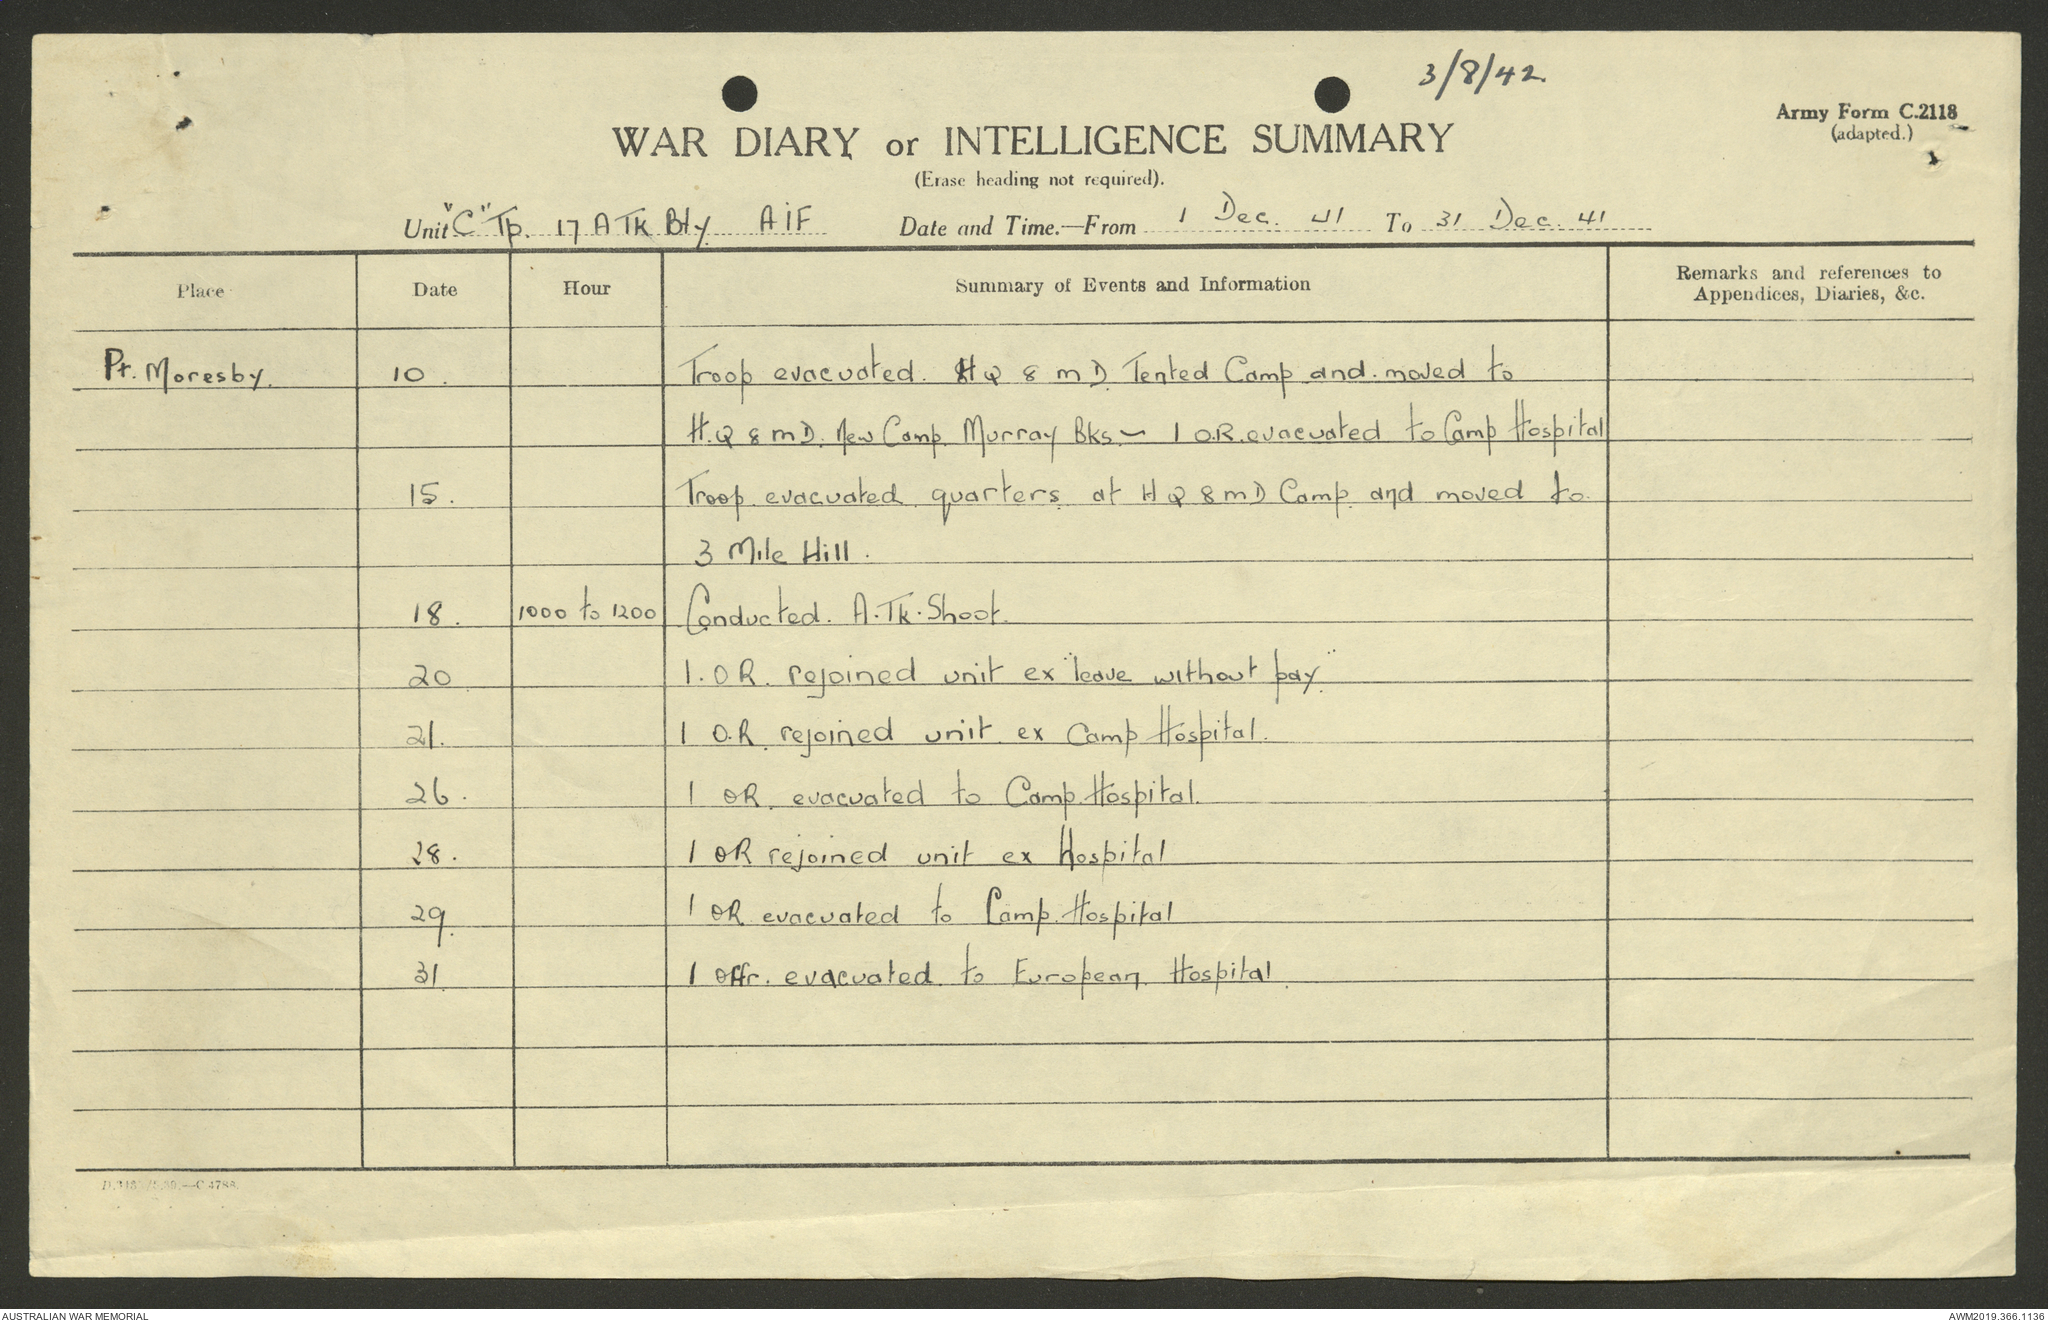 3/8/42
Army Form C.2118
(adapted.)
WAR DIARY or INTELLIGENCE SUMMARY
(Erase heading not required).
Unit "C" Tp. 17 A Tk Bty AIF Date and Time.—From 1 Dec. 41 To 31 Dec. 41
Place Date Hour Summary of Events and Information Remarks and references to
Appendices, Diaries, &c.
Pt. Moresby. 10. Troop evacuated. HQ 8 MD Tented Camp and moved to
H.Q 8 MD. New Camp Murray Bks – 1 O.R. evacuated to Camp Hospital
15. Troop evacuated quarters at HQ 8 MD Camp and moved to
3 Mile Hill.
18. 1000 to 1200 Conducted. A.Tk.Shoot.
20 1. OR. rejoined unit ex "leave without pay"
21. 1 O.R. rejoined unit ex Camp Hospital.
26. 1 OR. evacuated to Camp Hospital.
28. 1 OR rejoined unit ex Hospital
29. 1 OR evacuated to Camp Hospital
31 1 Offr. evacuated to European Hospital.
AUSTRALIAN WAR MEMORIAL AWM2019.366.1136